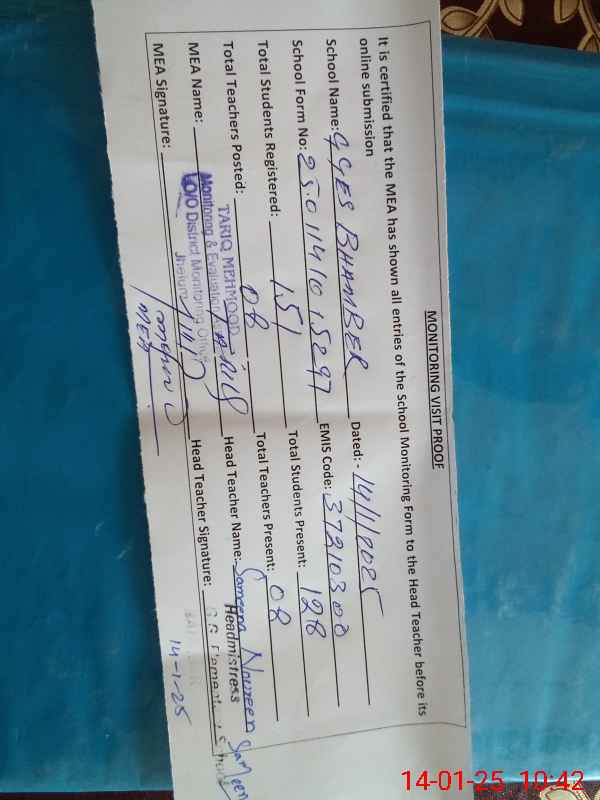 MONITORING VISIT PROOF
It is certified that the MEA has shown all entries of the School Monitoring Form to the Head Teacher before its
online submission
School Name: GGES BHAMBER Dated: - 14/1/2025
School Form No: 25011410 15297 EMIS Code: 37210300
Total Students Registered: 151 Total Students Present: 128
Total Teachers Posted: 08 Total Teachers Present: 08
MEA Name: TARIQ MEHMOOD Head Teacher Name: Sameena Noureen
Monitoring & Evaluation
O/O District Monitoring Office
Jhelum
Headmistress
MEA Signature: MEA Head Teacher Signature: Sameen
G.G. Elementary School
14-1-25
14-01-25 10:42